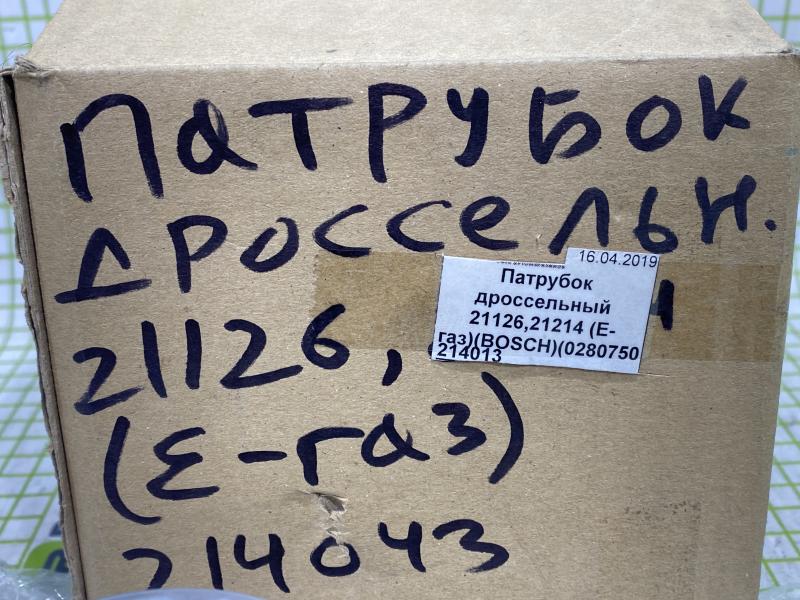 Патрубок
дроссельн.
21126,
(Е-газ)
214043
16.04.2019
Патрубок
дроссельный
21126,21214 (Е-
газ)(BOSCH)(0280750
214013